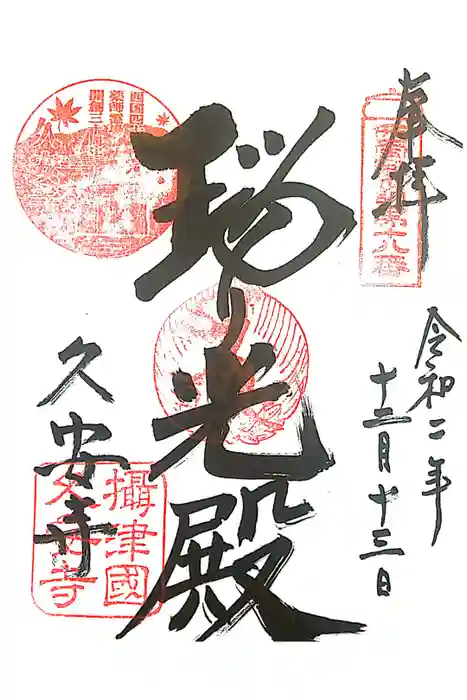 奉拝
西国薬師第十八番
令和二年
十二月十三日
瑠り光殿
西国四
薬師霊
開創三十
久安寺
攝津國
久安寺